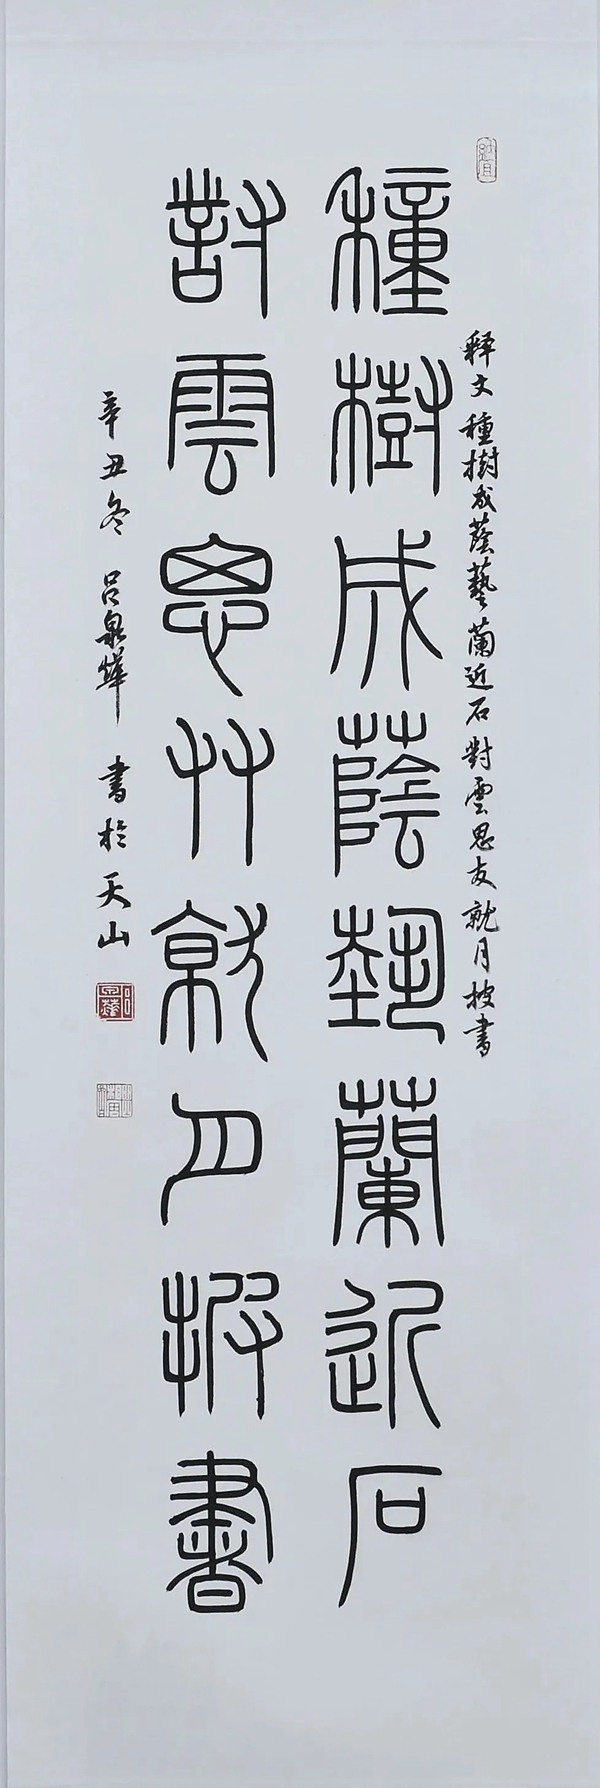 種樹成蔭藝蘭近石
對雲思友就月披書
释文種樹成蔭藝蘭近石對雲思友就月披書
辛丑冬 吕泉燁 書於天山